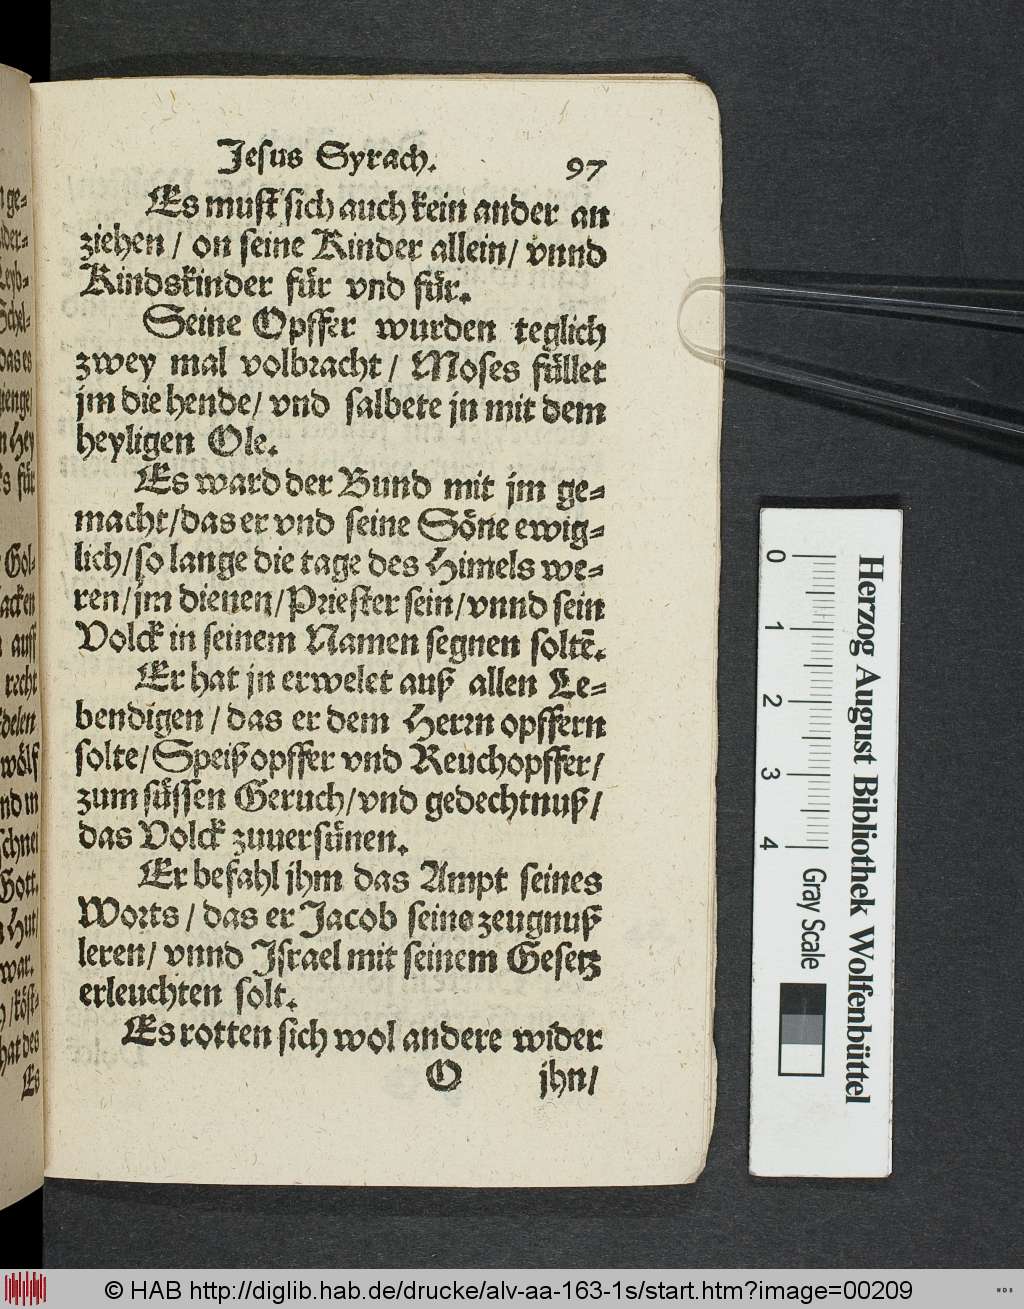 Jesus Syrach. 97
Es must sich auch kein ander an
ziehen / on seine Kinder allein / vnnd
Kindskinder für vnd für.
Seine Opffer wurden teglich
zwey mal volbracht / Moses füllet
jm die hende / vnd salbete jn mit dem
heyligen Ole.
Es ward der Bund mit jm ge-
macht / das er vnd seine Söne ewig-
lich / so lange die tage des Himels we-
ren / jm dienen / Priester sein / vnnd sein
Volck in seinem Namen segnen soltẽ.
Er hat jn erwelet auß allen Le-
bendigen / das er dem Herrn opffern
solte / Speißopffer vnd Reuchopffer /
zum süssen Geruch / vnd gedechtnuß /
das Volck zuuersünen.
Er befahl jhm das Ampt seines
Worts / das er Jacob seins zeugnuß
leren / vnnd Israel mit seinem Gesetz
erleuchten solt.
Es rotten sich wol andere wider
O jhn /
n ge-
der-
Leyb-
Schel-
das es
n Hey
s für
Gol-
acken
auff
recht
delen
wölf
nd in
schnei
Gott.
Hut
war.
/ köst-
hat des
Es
Herzog August Bibliothek Wolfenbüttel
0 1 2 3 4
Gray Scale
© HAB http://diglib.hab.de/drucke/alv-aa-163-1s/start.htm?image=00209